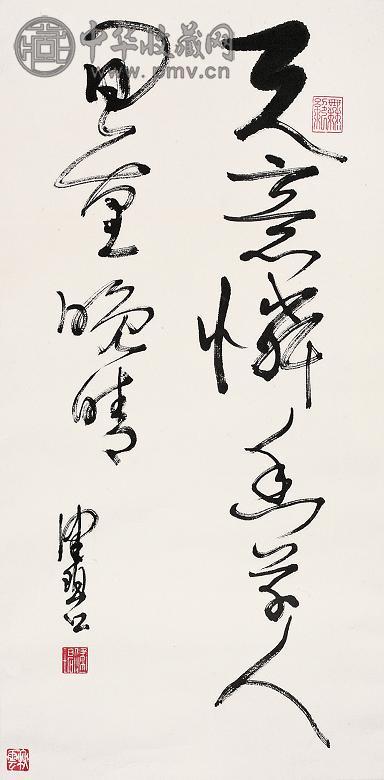 中华收藏网
www.pmv.cn
天意憐幽草人
間重晚晴